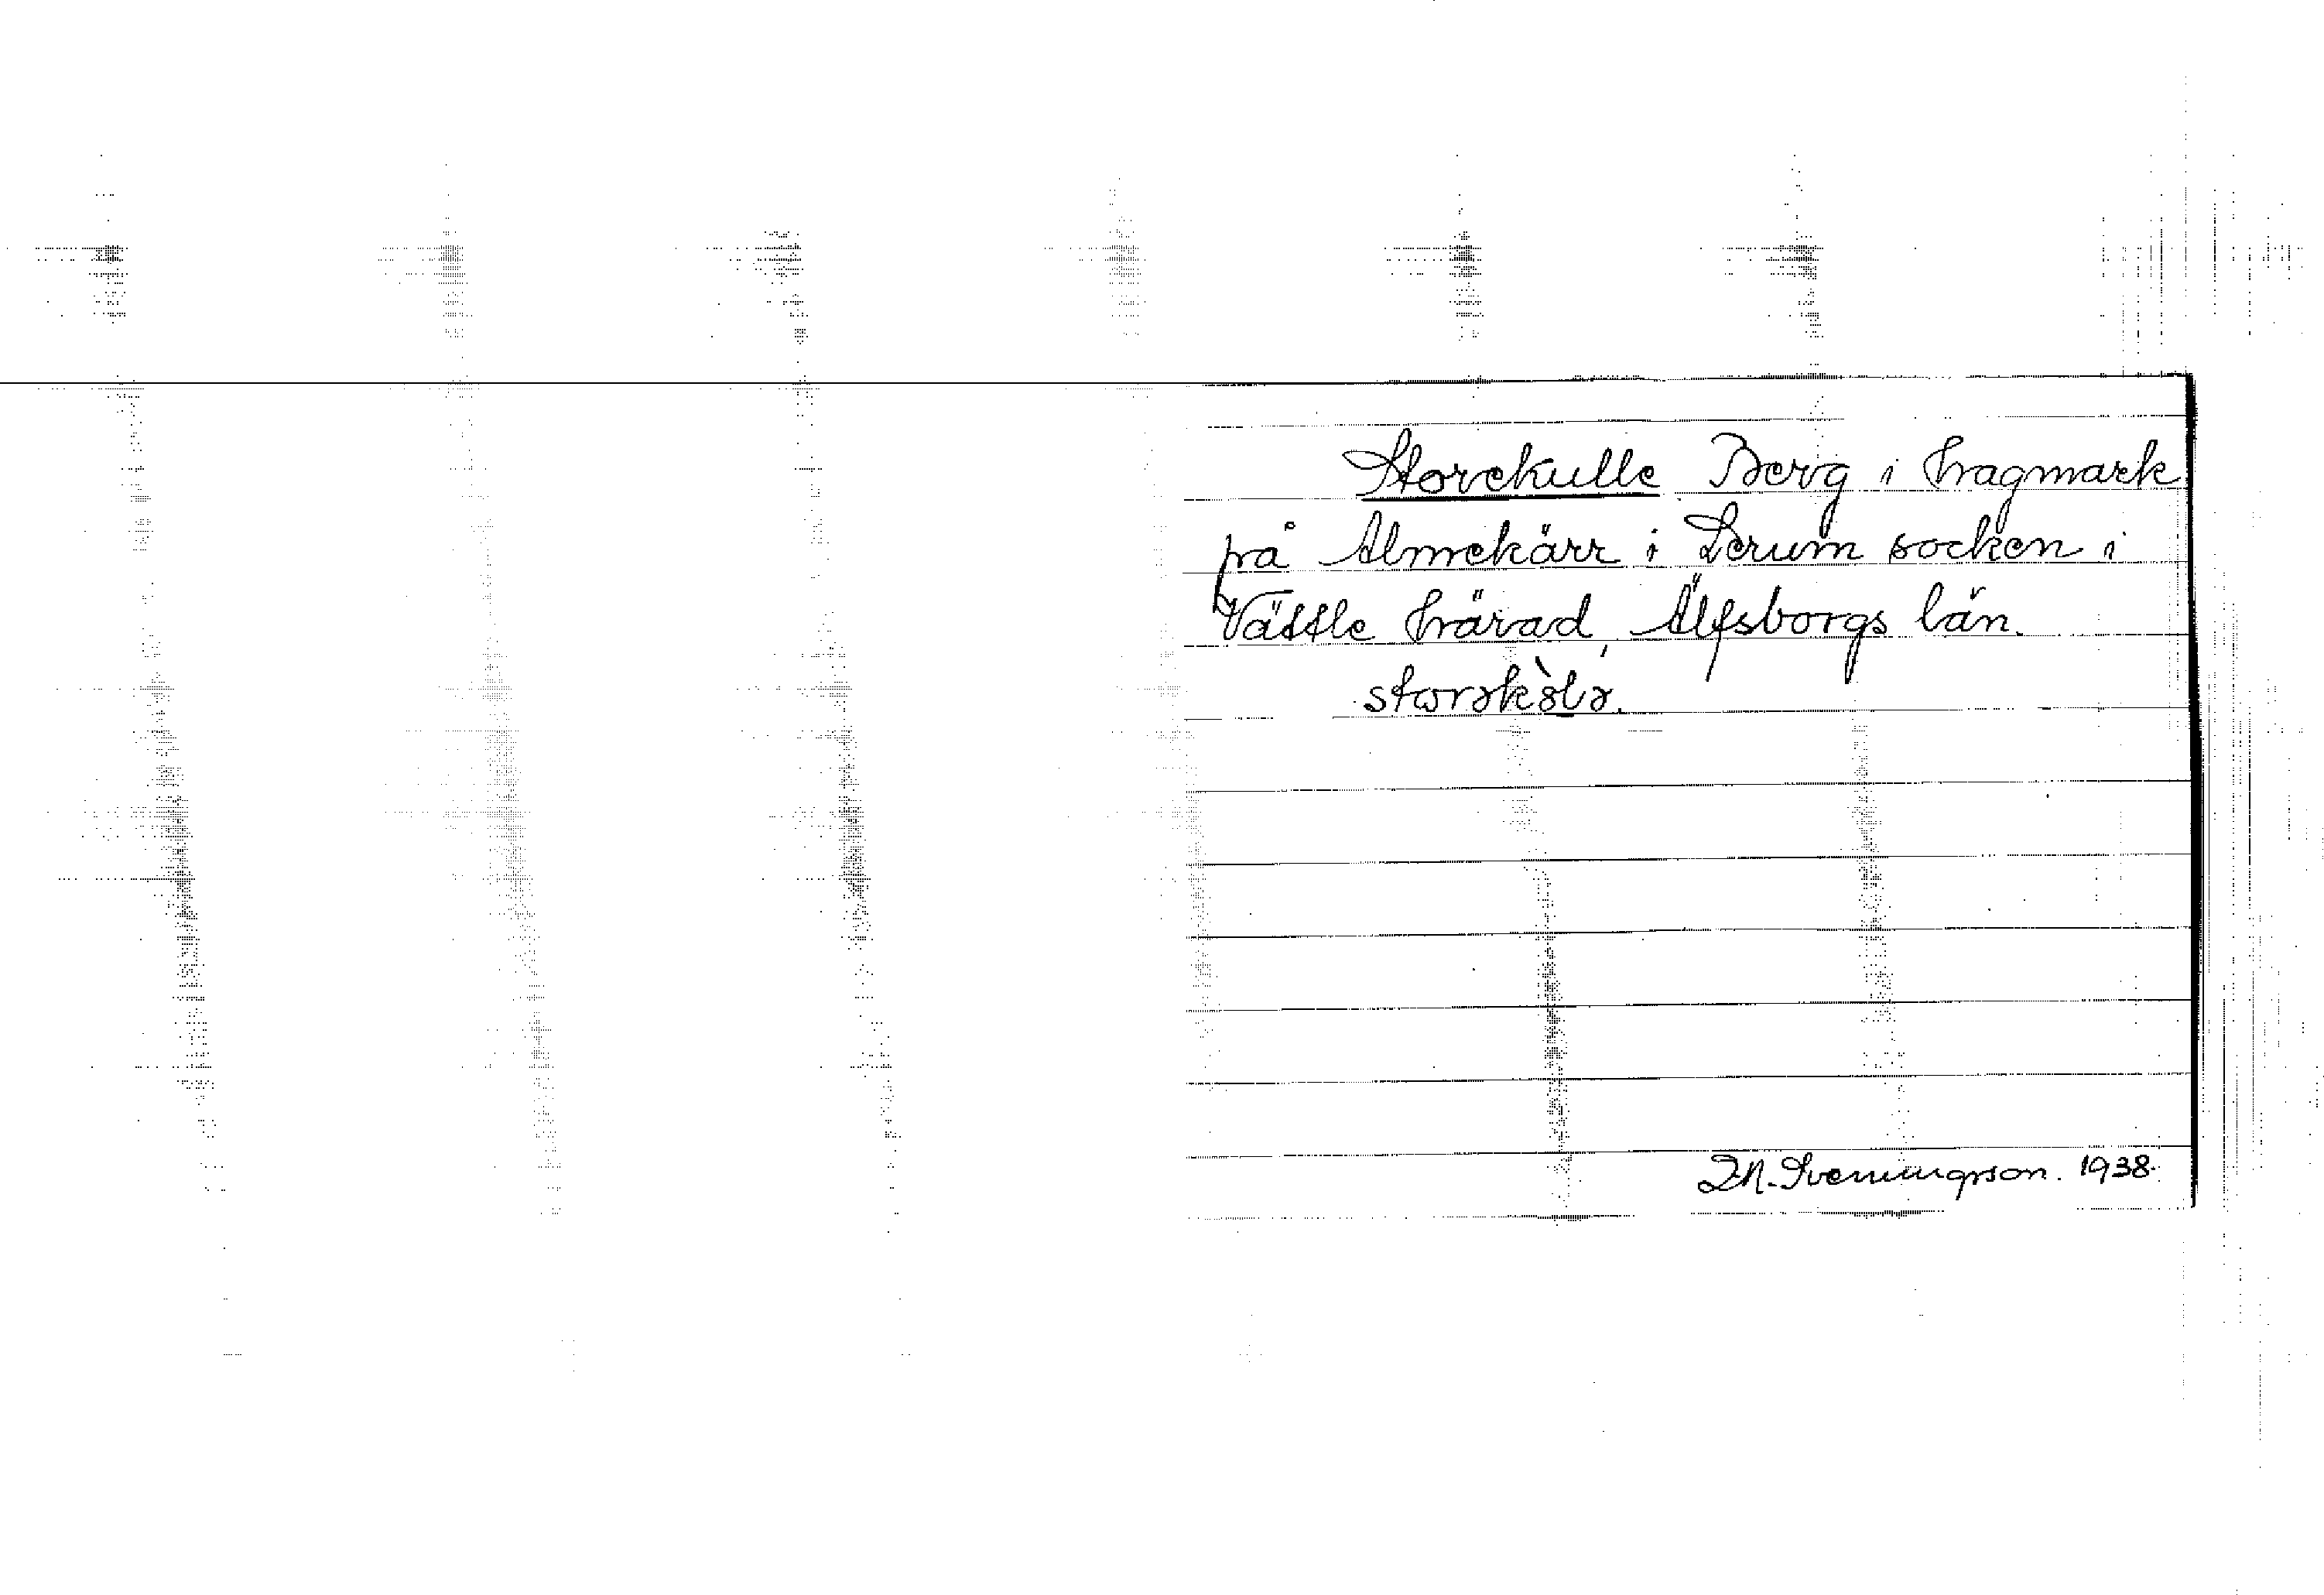 Storekulle Berg i hagmark
på Almekärr i Lerum socken i
Vättle härad, Älfsborgs län.
storəkù̀lə́.
D.N. Sveningsson. 1938.